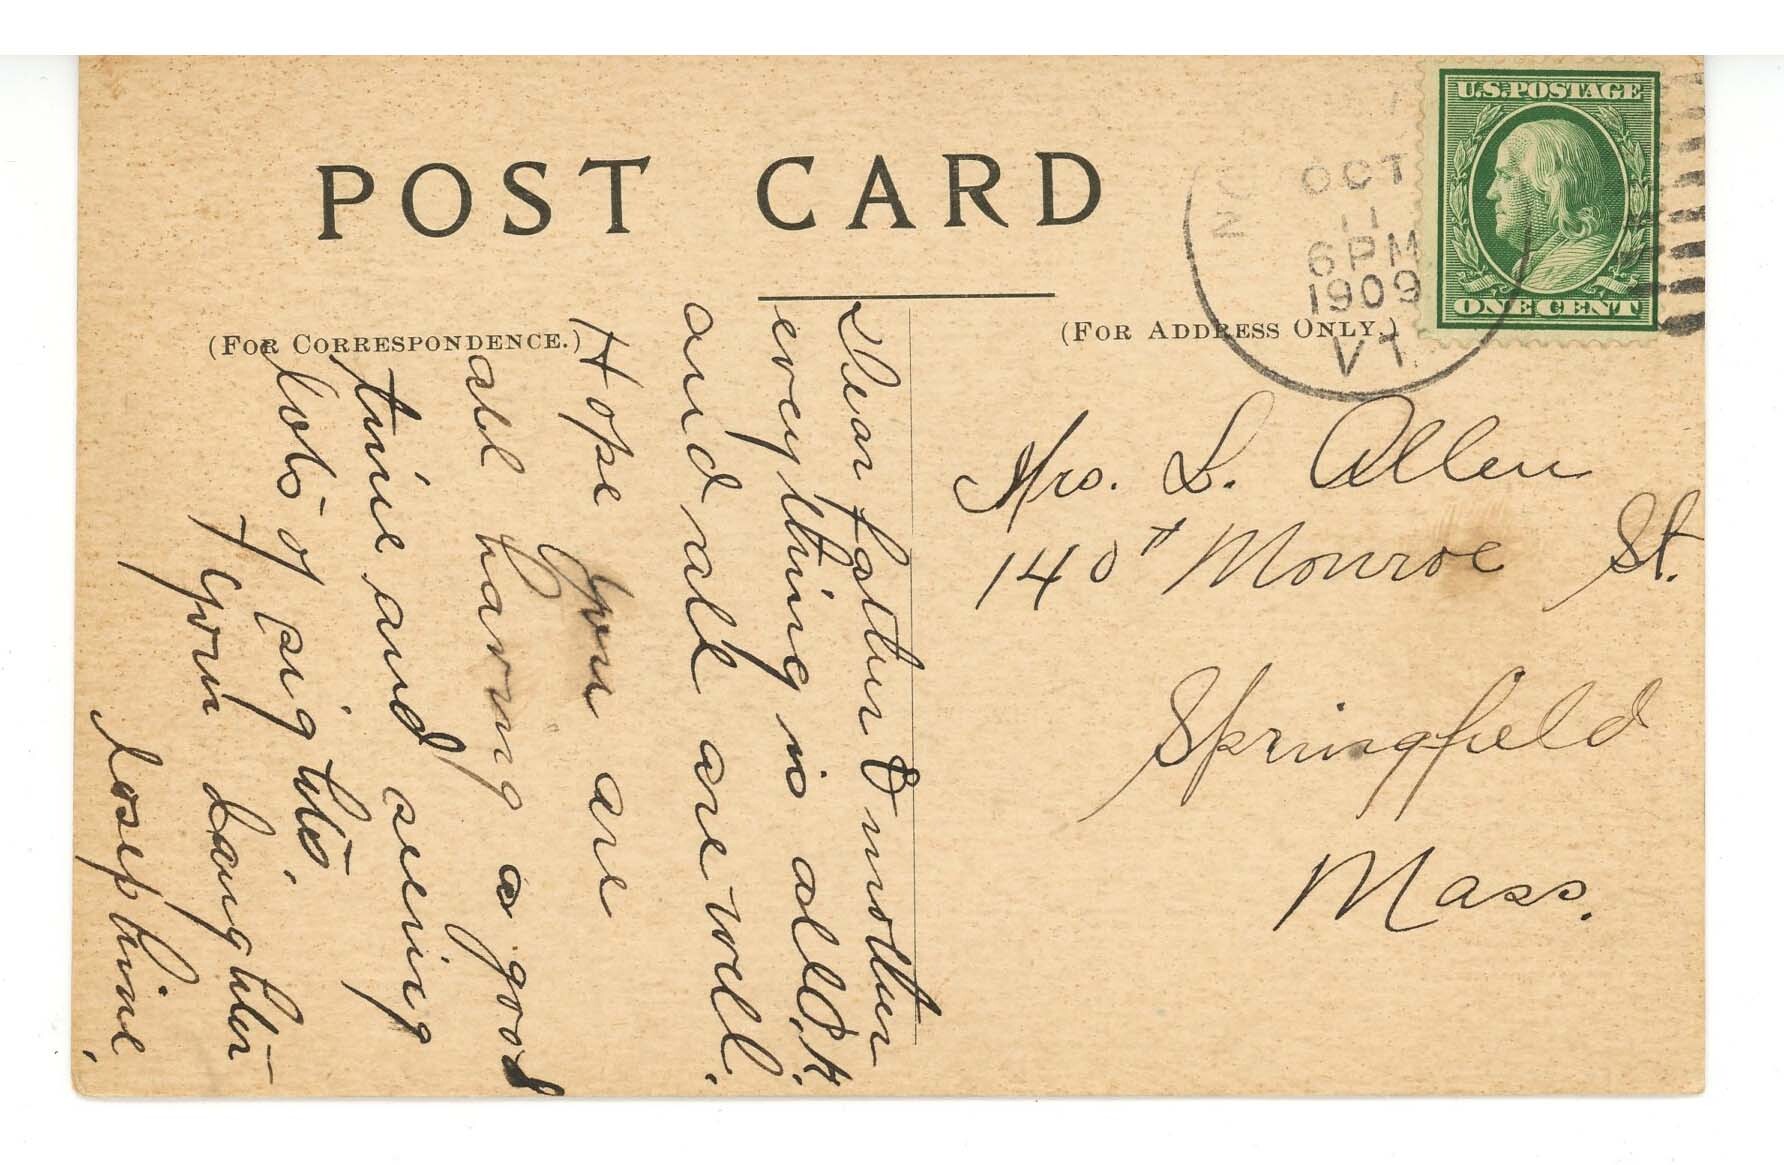 POST CARD
(FOR CORRESPONDENCE.)
(FOR ADDRESS ONLY.)
U.S. POSTAGE
ONE CENT
OCT
11
6 PM
1909
VT.
Dear father & mother
everything is all O.K.
and all are well.
Hope you are
all having a good
time and seeing
lots of sights.
Your daughter
Josephine.
Mrs. L. Allen
140 Monroe St.
Springfield
Mass.